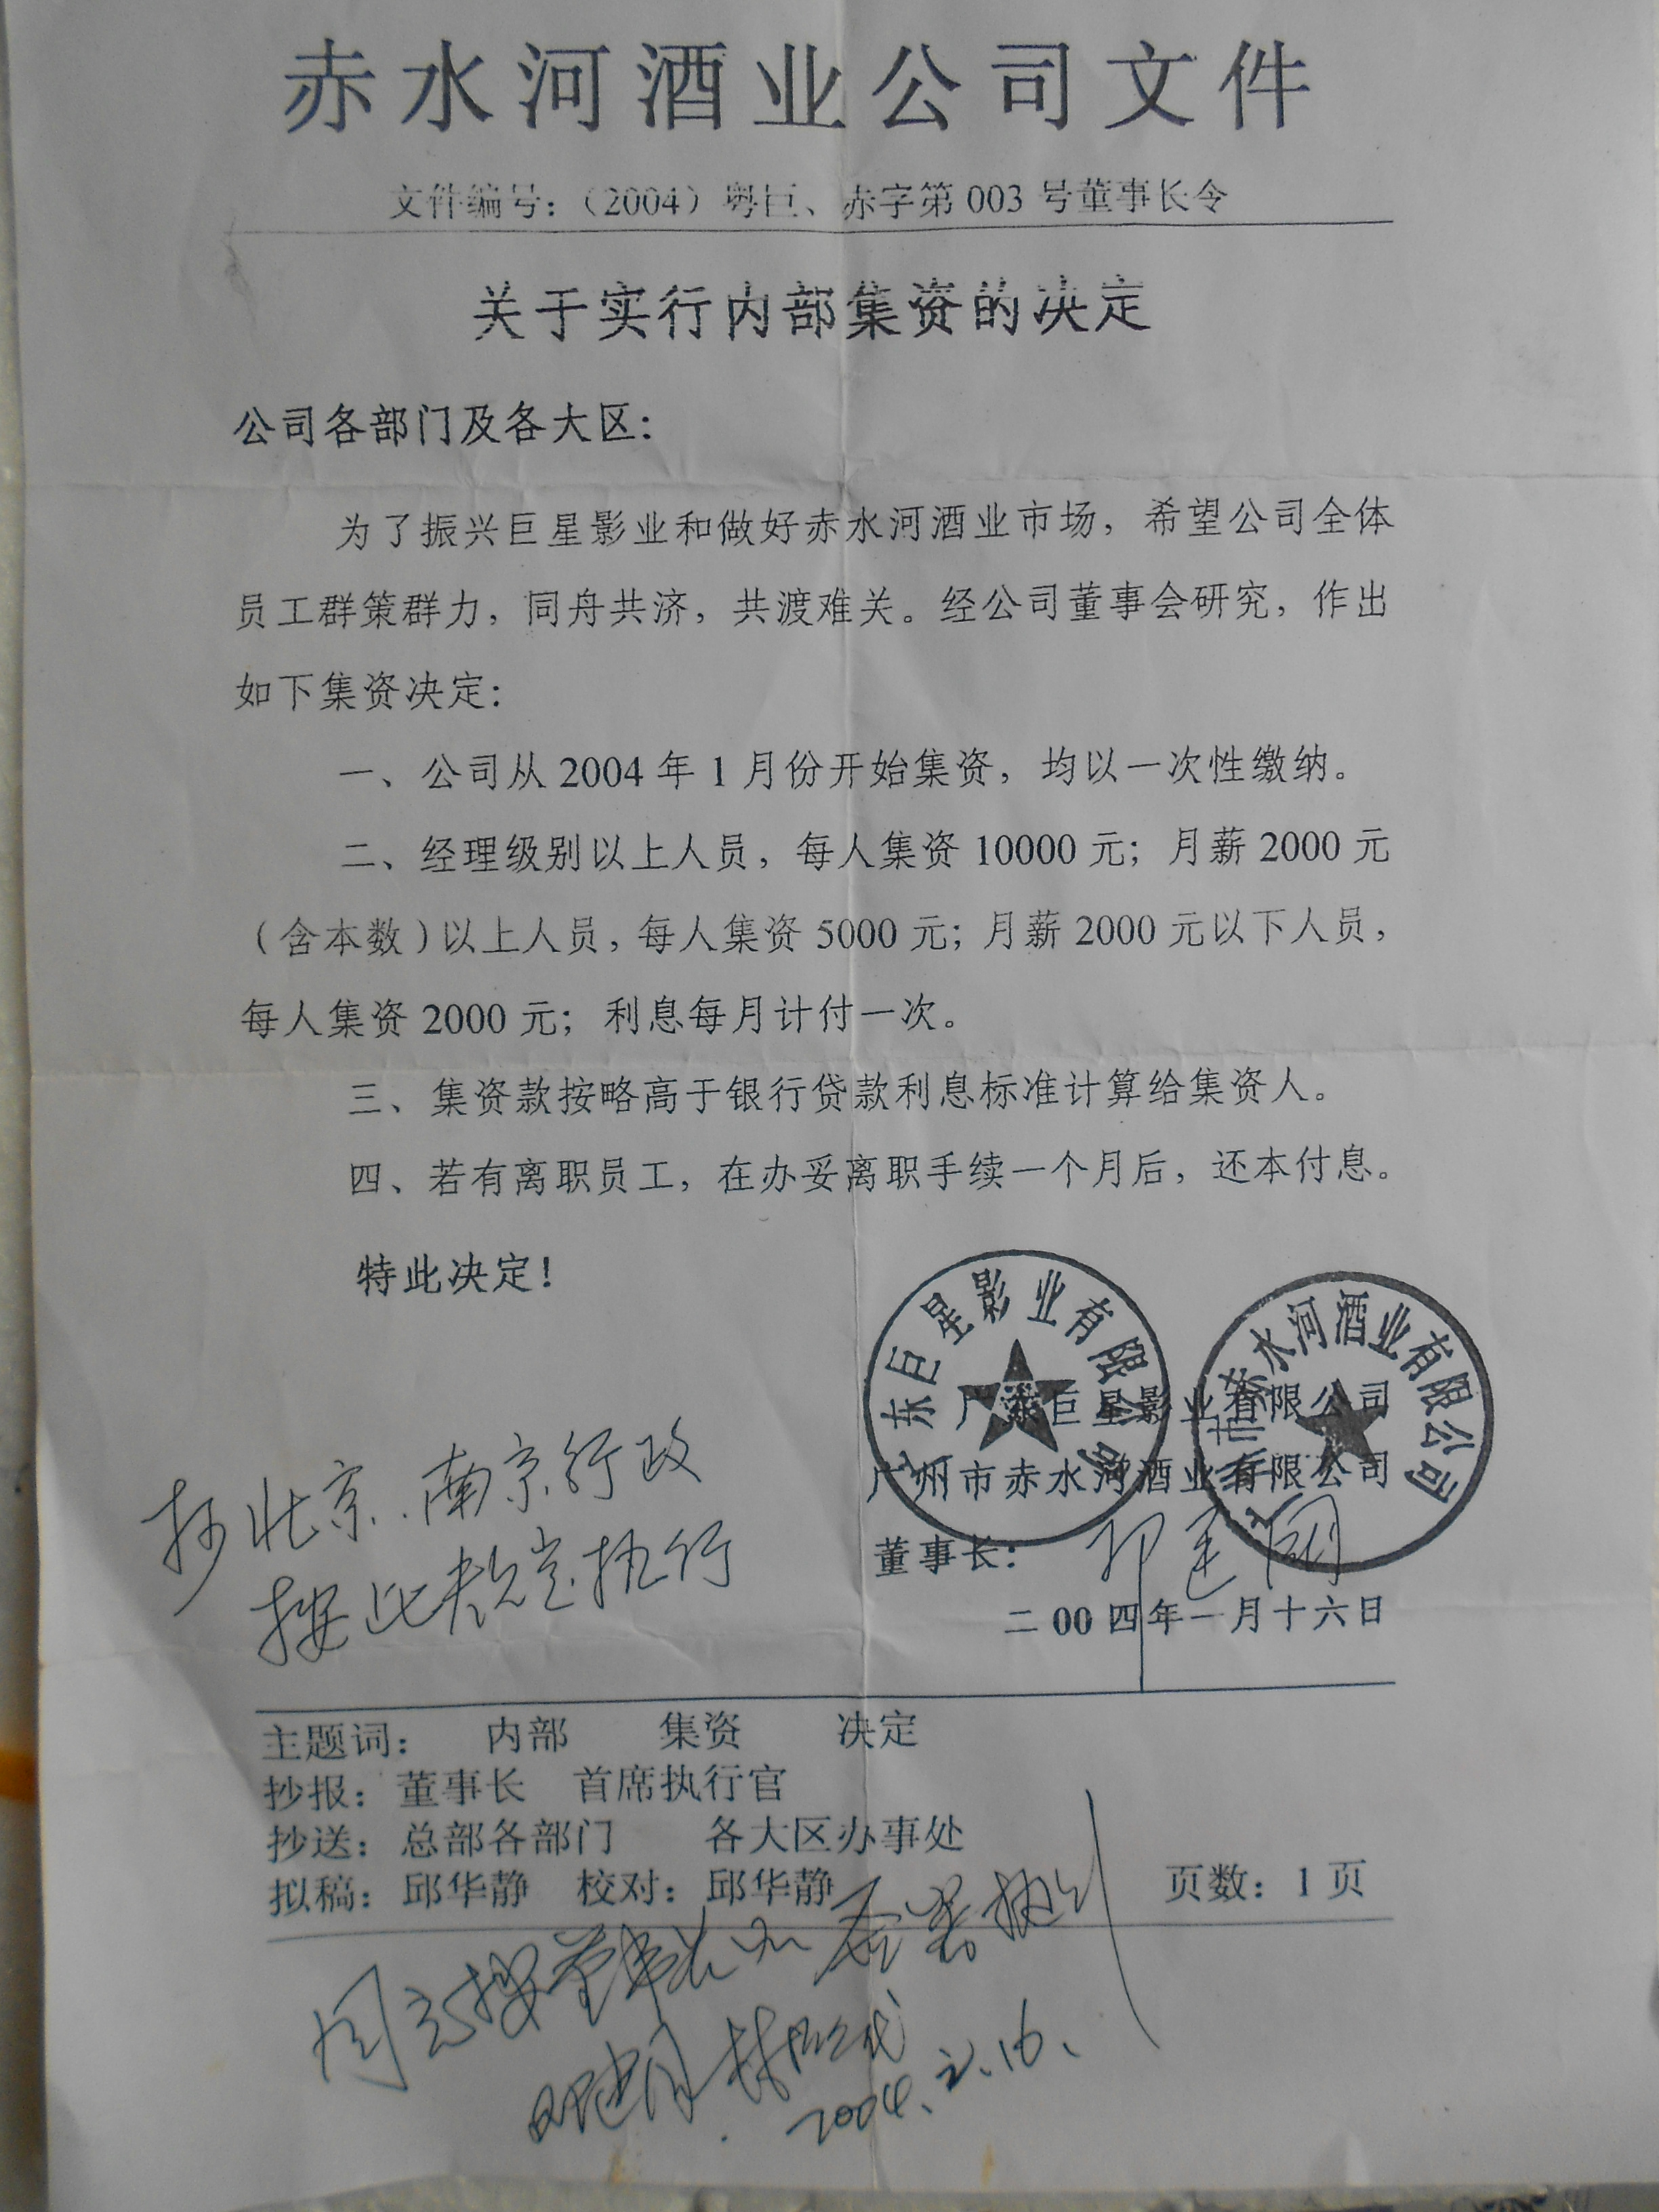 赤水河酒业公司文件
文件编号：（2004）粤巨、赤字第 003 号董事长令
关于实行内部集资的决定
公司各部门及各大区：
为了振兴巨星影业和做好赤水河酒业市场，希望公司全体
员工群策群力，同舟共济，共渡难关。经公司董事会研究，作出
如下集资决定：
一、公司从 2004 年 1 月份开始集资，均以一次性缴纳。
二、经理级别以上人员，每人集资 10000 元；月薪 2000 元
（含本数）以上人员，每人集资 5000 元；月薪 2000 元以下人员，
每人集资 2000 元；利息每月计付一次。
三、集资款按略高于银行贷款利息标准计算给集资人。
四、若有离职员工，在办妥离职手续一个月后，还本付息。
特此决定！
广东巨星影业有限公司
广州市赤水河酒业有限公司
广东巨星影业有限公司
广州市赤水河酒业有限公司
董事长：
二 00 四年一月十六日
抄北京、南京行政
按此规定执行
主题词： 内部 集资 决定
抄报：董事长 首席执行官
抄送：总部各部门 各大区办事处
拟稿：邱华静 校对：邱华静 页数：1 页
同意按董事长
2004.2.16.